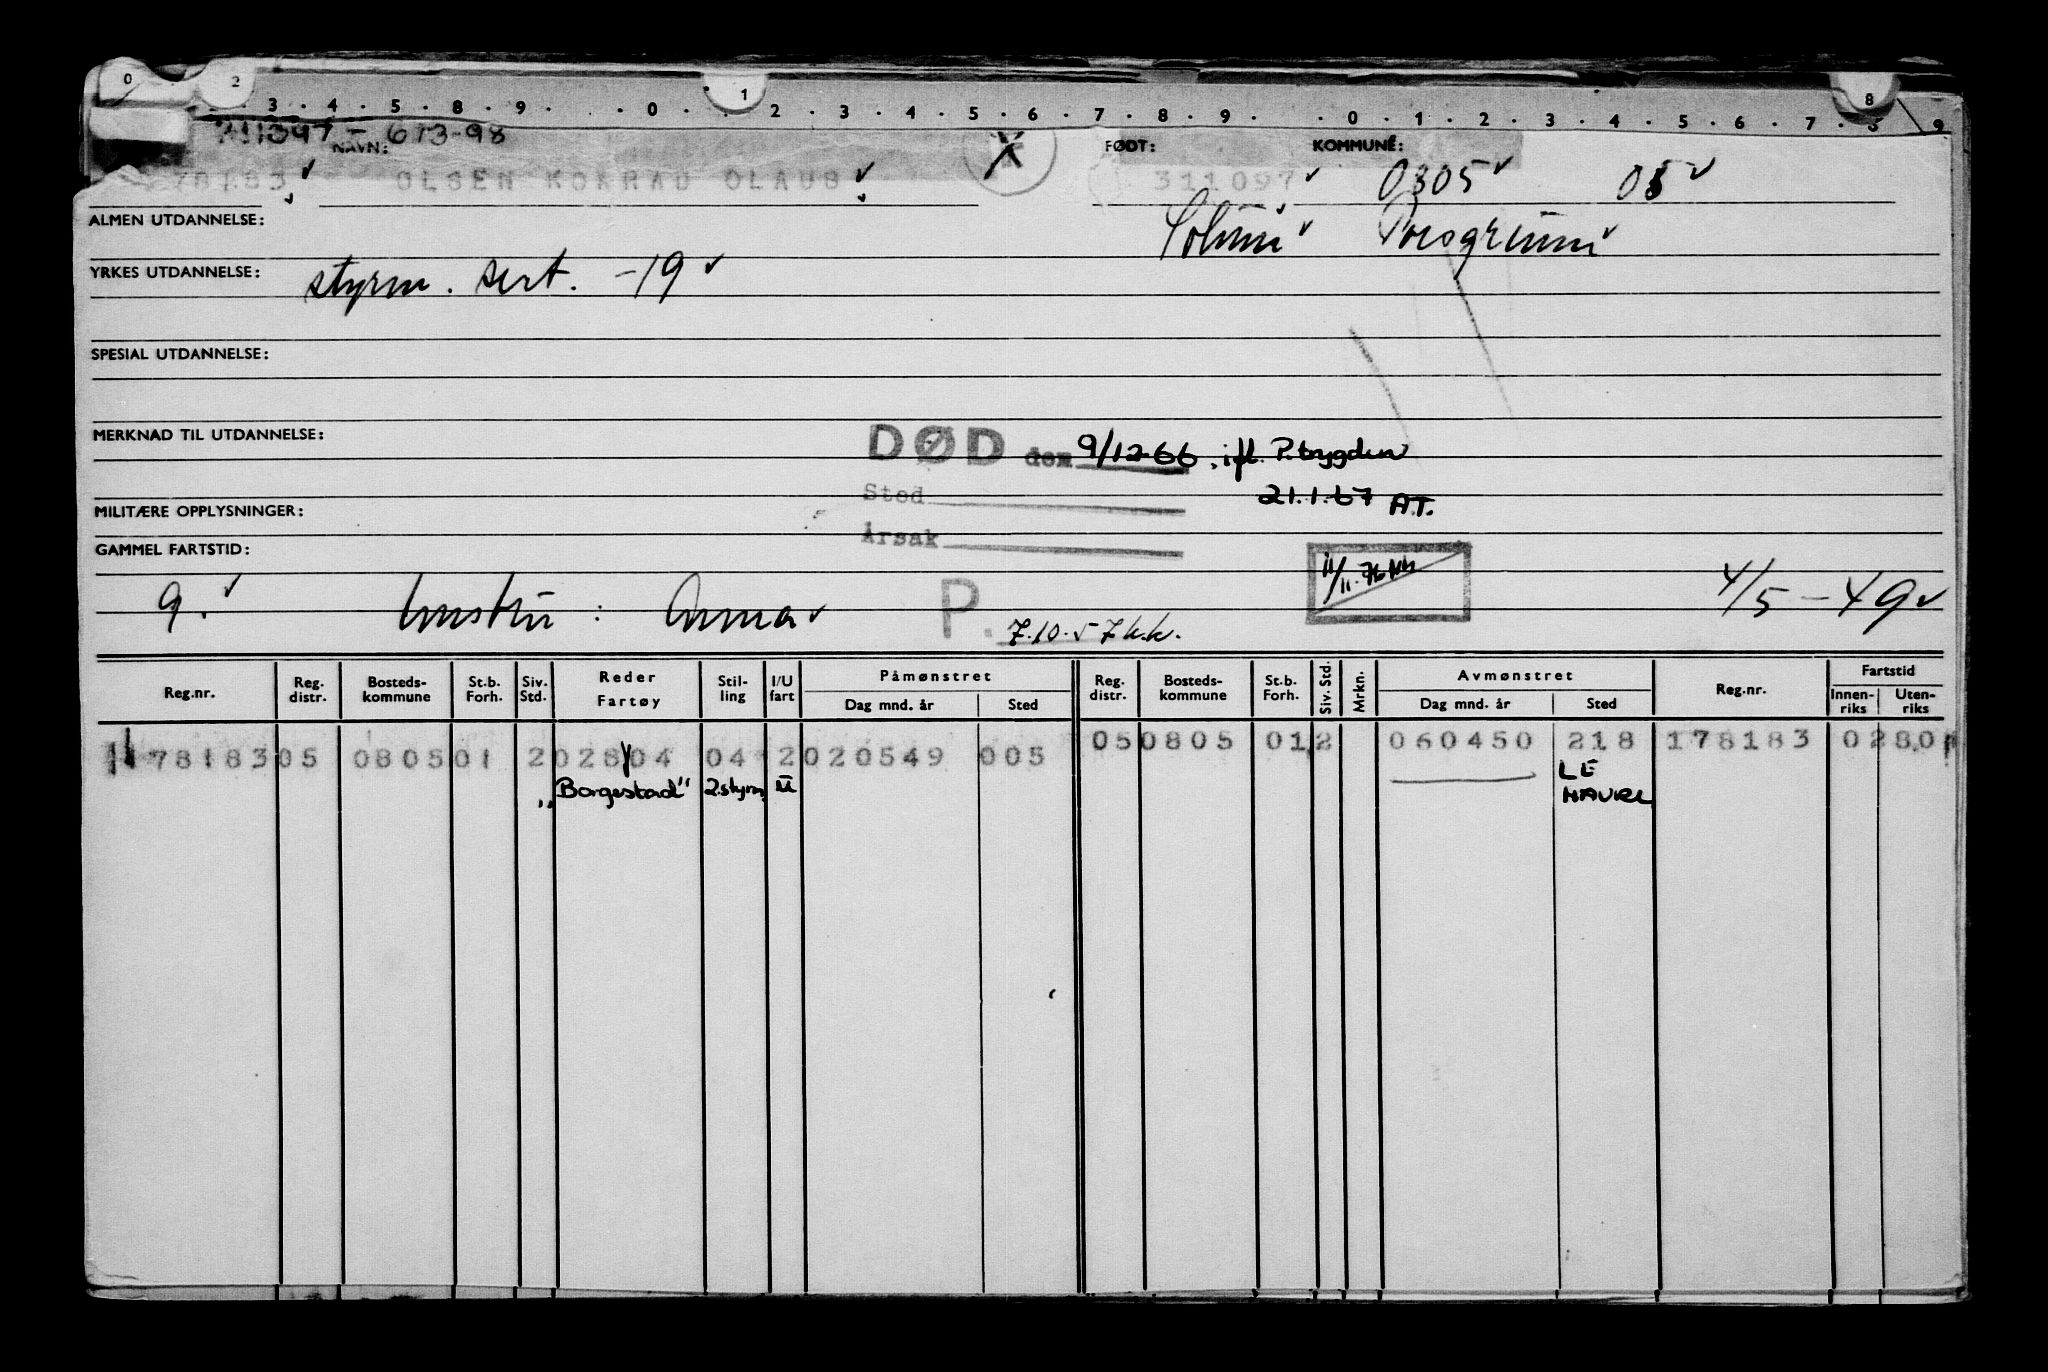 0 2 1 8
3 . 4 . 5 . 8 . 9 . . 0 . . 2 . 3 . 4 . 5 . 6 . 7 . 8 . 9 . . 0 . 1 . 2 . 3 . 4 . 5 . 6 . 7 . 8 9
311097 - 613-98
NAVN: FØDT: KOMMUNE:
78183 OLSEN KONRAD OLAUS 311097 0805 05
ALMEN UTDANNELSE: Solum Porsgrunn
YRKES UTDANNELSE: styrm. sert. -19
SPESIAL UTDANNELSE:
MERKNAD TIL UTDANNELSE: DØD den 9/12-66, ifl. P.trygden
Sted 21.1.67 A.T.
MILITÆRE OPPLYSNINGER:
Årsak
GAMMEL FARTSTID:
9. hustru : Anna P. 7.10.57 k.k. 11/11.76 4/5-49
Reg.nr. Reg. distr. Bosteds- kommune St.b. Forh. Siv. Std. Reder Fartøy Stil- ling I/U fart Påmønstret Dag mnd. år Sted Reg. distr. Bosteds- kommune St.b. Forh. Siv. Std. Mrkn. Avmønstret Dag mnd. år Sted Reg.nr. Fartstid Innen- riks Uten- riks
178183 05 0805 01 2 028 04 04 2 020549 005 05 0805 01 2 060450 218 178183 02801
"Borgestad" 2styrm U LE HAVRE